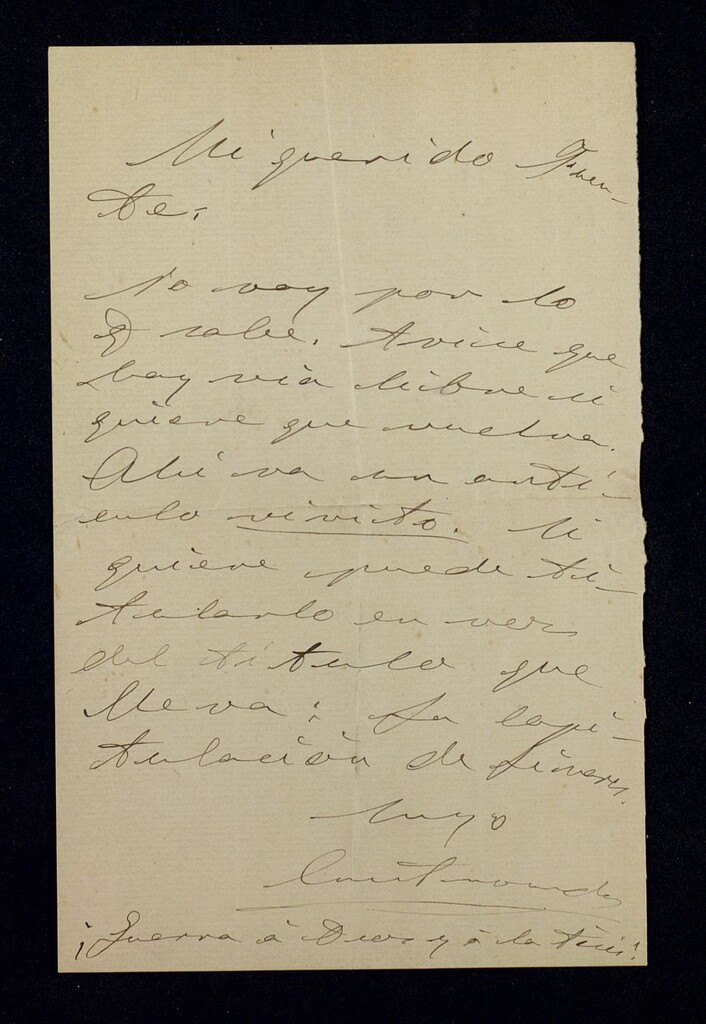 Mi querido Fuen-
te:
No voy por lo
q sabe. Avise que
hay via libre si
quiere que vuelva.
Ahi va un artí-
culo vivito. Si
quiere puede ti-
tularlo en vez
del título que
lleva: La capi-
tulación de Linares.
Suyo
¡Guerra á Dios y á la tisis!